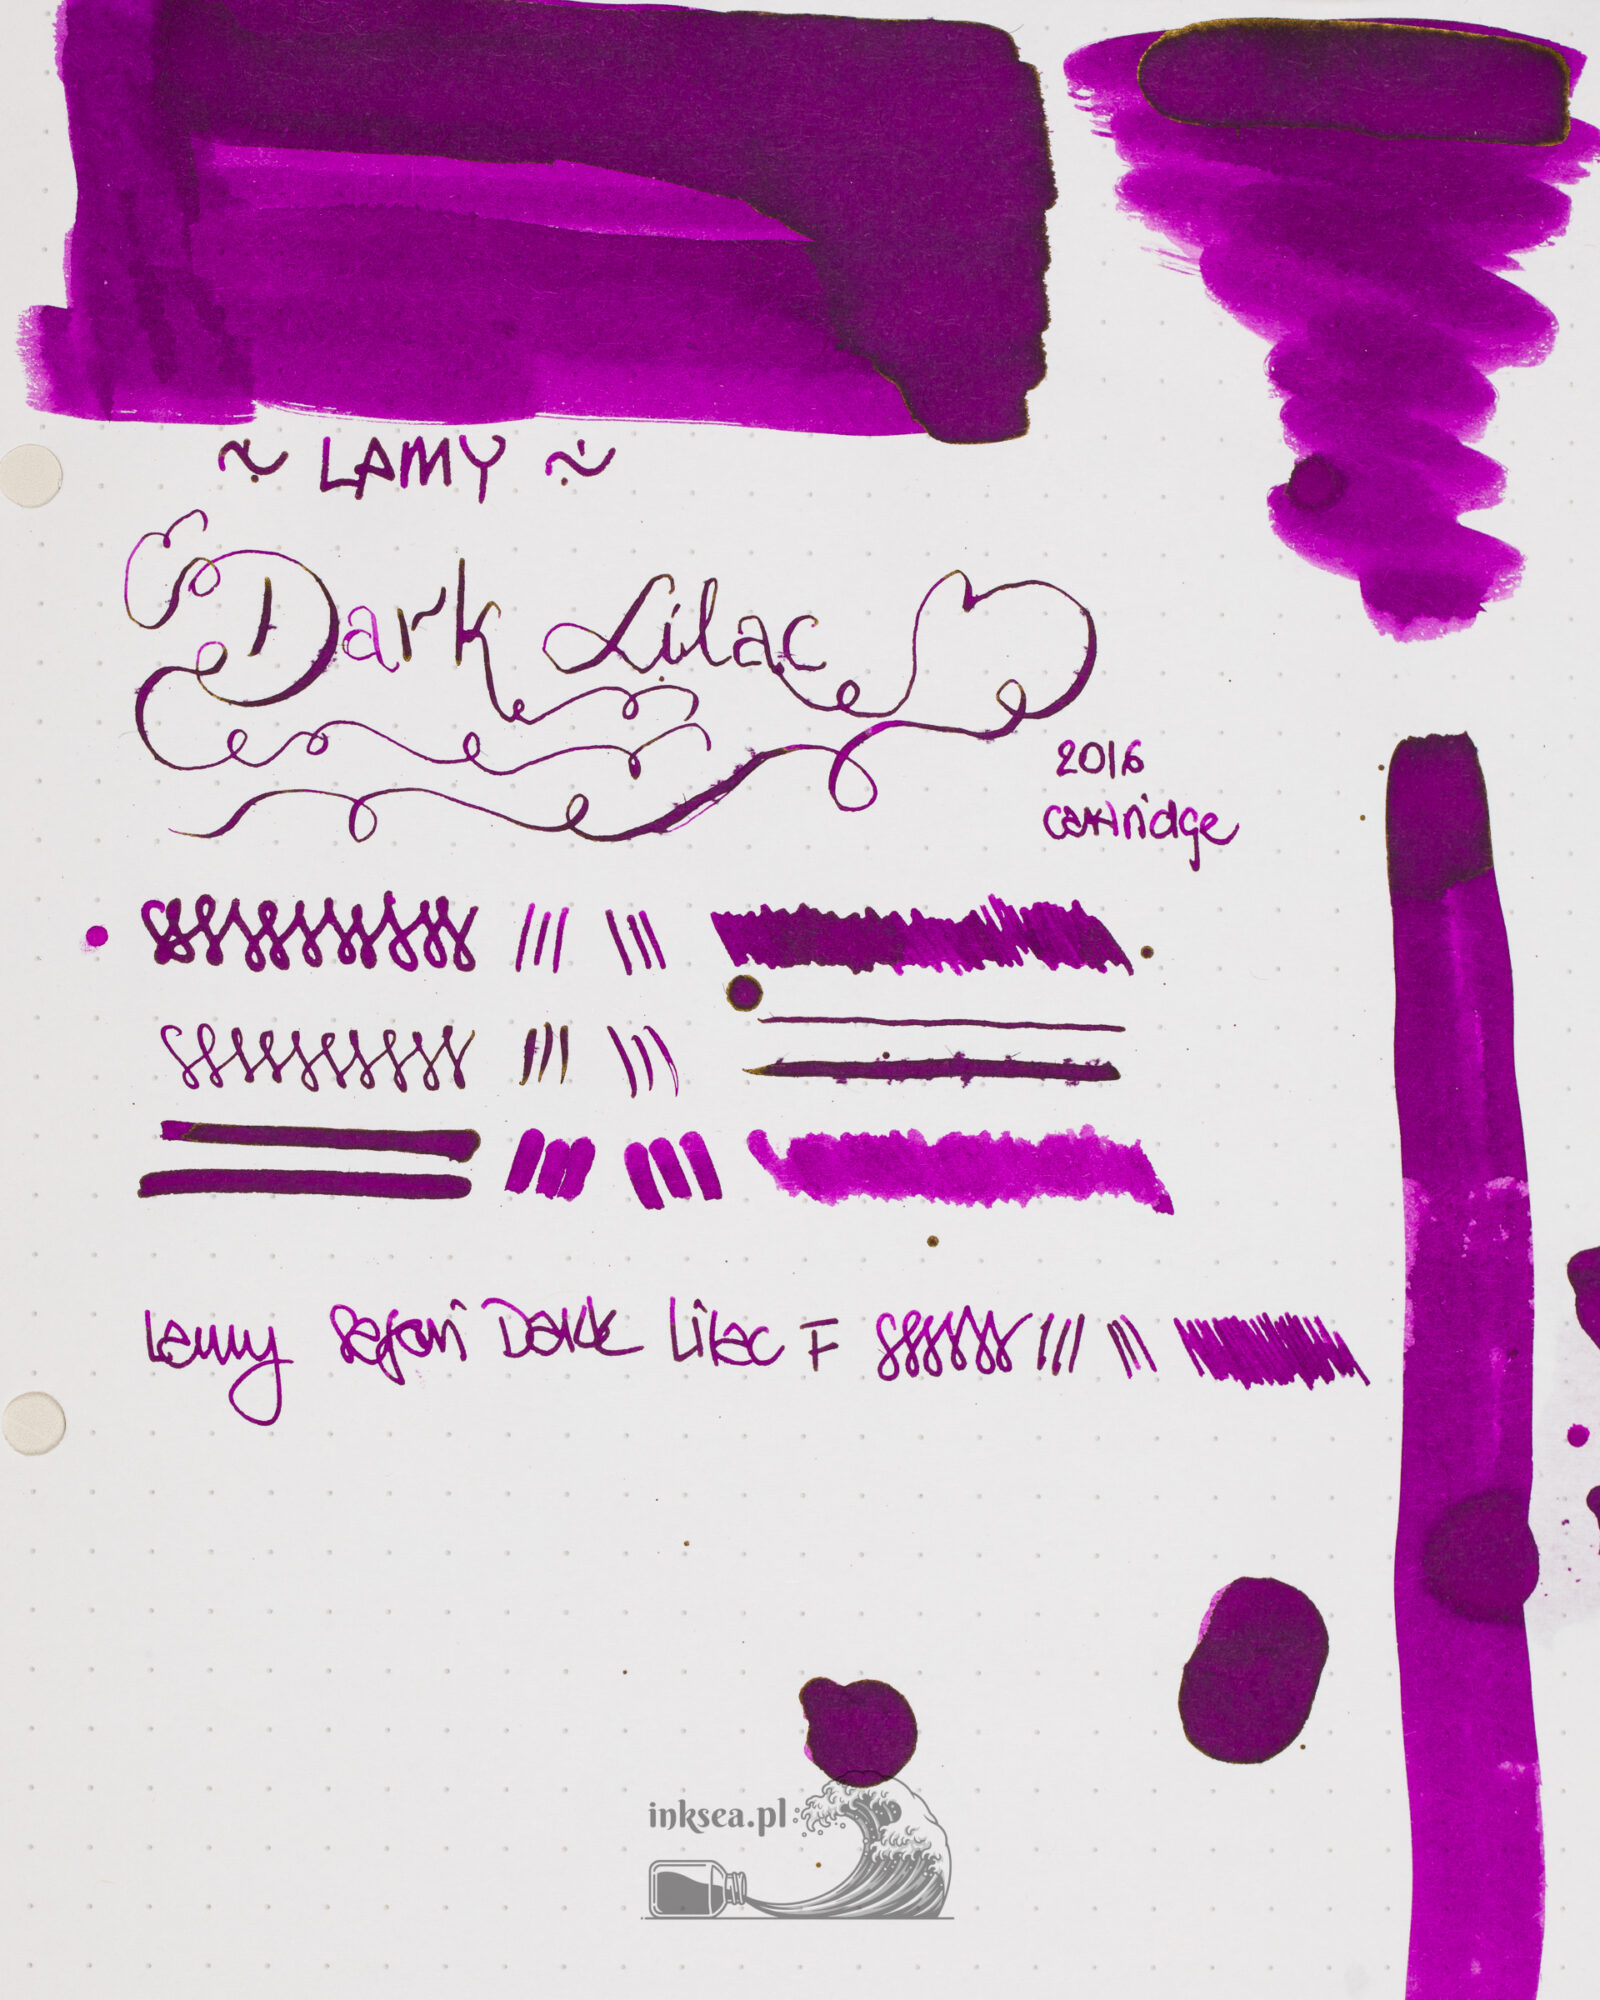 ~ LAMY ~
Dark Lilac
2016
cartridge
Lamy Safari Dark Lilac F
inksea.pl